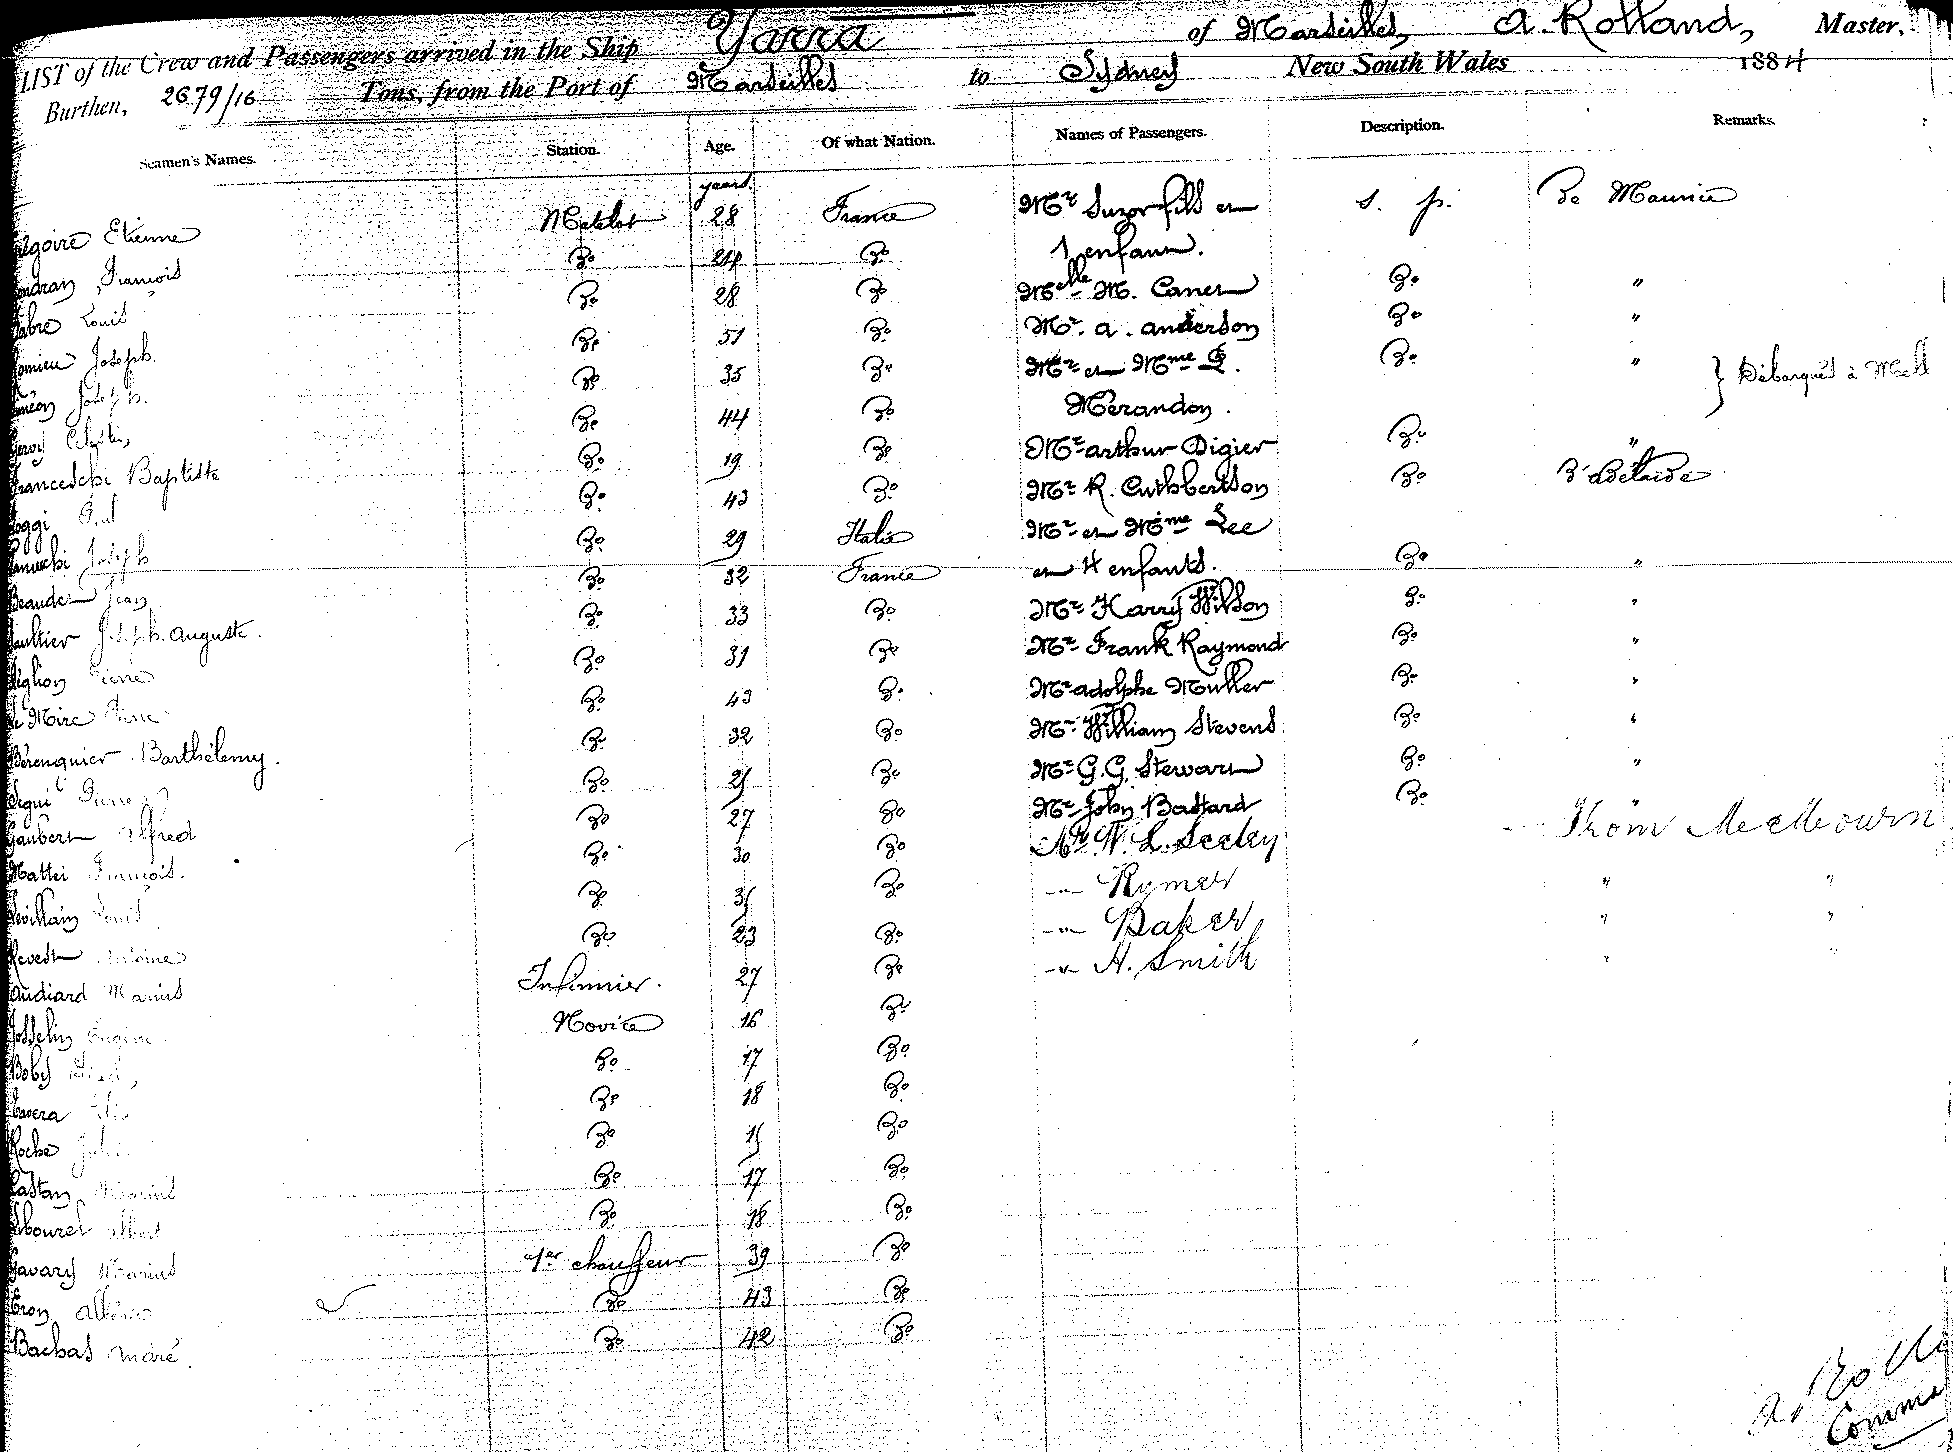 LIST of the Crew and Passengers arrived in the Ship Yarra of Marseilles, A. Rolland, Master,
Burthen, 2679/16 Tons, from the Port of Marseilles to Sydney New South Wales 1884
Seamen's Names. Station. Age. Of what Nation. Names of Passengers. Description. Remarks.
years
égoire Etienne Matelot 28 France Mr Suzor fils et s. p. De Maurice
François Do 24 Do 1 enfant.
abre Louis Do 28 Do Melle M. Canet Do "
omieu Joseph. Do 51 Do Mr. A. Anderson Do "
Joseph. Do 35 Do Mr et Mme Do " } Débarqués à Melb
Do 44 Do Mérandon.
ranceschi Baptiste Do 19 Do Mr Arthur Digier Do "
oggi Paul Do 43 Do Mr R. Cuthbertson Do D'Adélaïde
Joseph Do 29 Italie Mr et Mme Lee
Beaudet Jean Do 32 France et 4 enfants. Do "
aultier Joseph Auguste. Do 33 Do Mr Harry Wilson Do "
iglion Pierre Do 31 Do Mr Frank Raymond Do "
e Moire Pierre Do 43 Do Mr Adolphe Muller Do "
Bérenguier Barthélemy. Do 32 Do Mr William Stevens Do "
Segui Pierre Do 25 Do Mr G. G. Stewart Do "
Gaubert Alfred Do 27 Do Mr John Bastard Do "
Mattei François. Do 30 Do Mr. W. L. Seeley From Melbourn
evillain Louis Do 35 Do -"- Rymer " "
Revest Antoine Do 23 Do -"- Baker " "
audiard Marius Infirmier. 27 Do -"- H. Smith " "
Josselin Eugène Novice 16 Do
Boby Do 17 Do
avera Do 18 Do
Roche Jules Do 15 Do
astan Marius Do 17 Do
bourel Albert Do 18 Do
avary Marius 1er chauffeur 39 Do
Do 43 Do
Bachas Do 42 Do
A. Roll
Comma